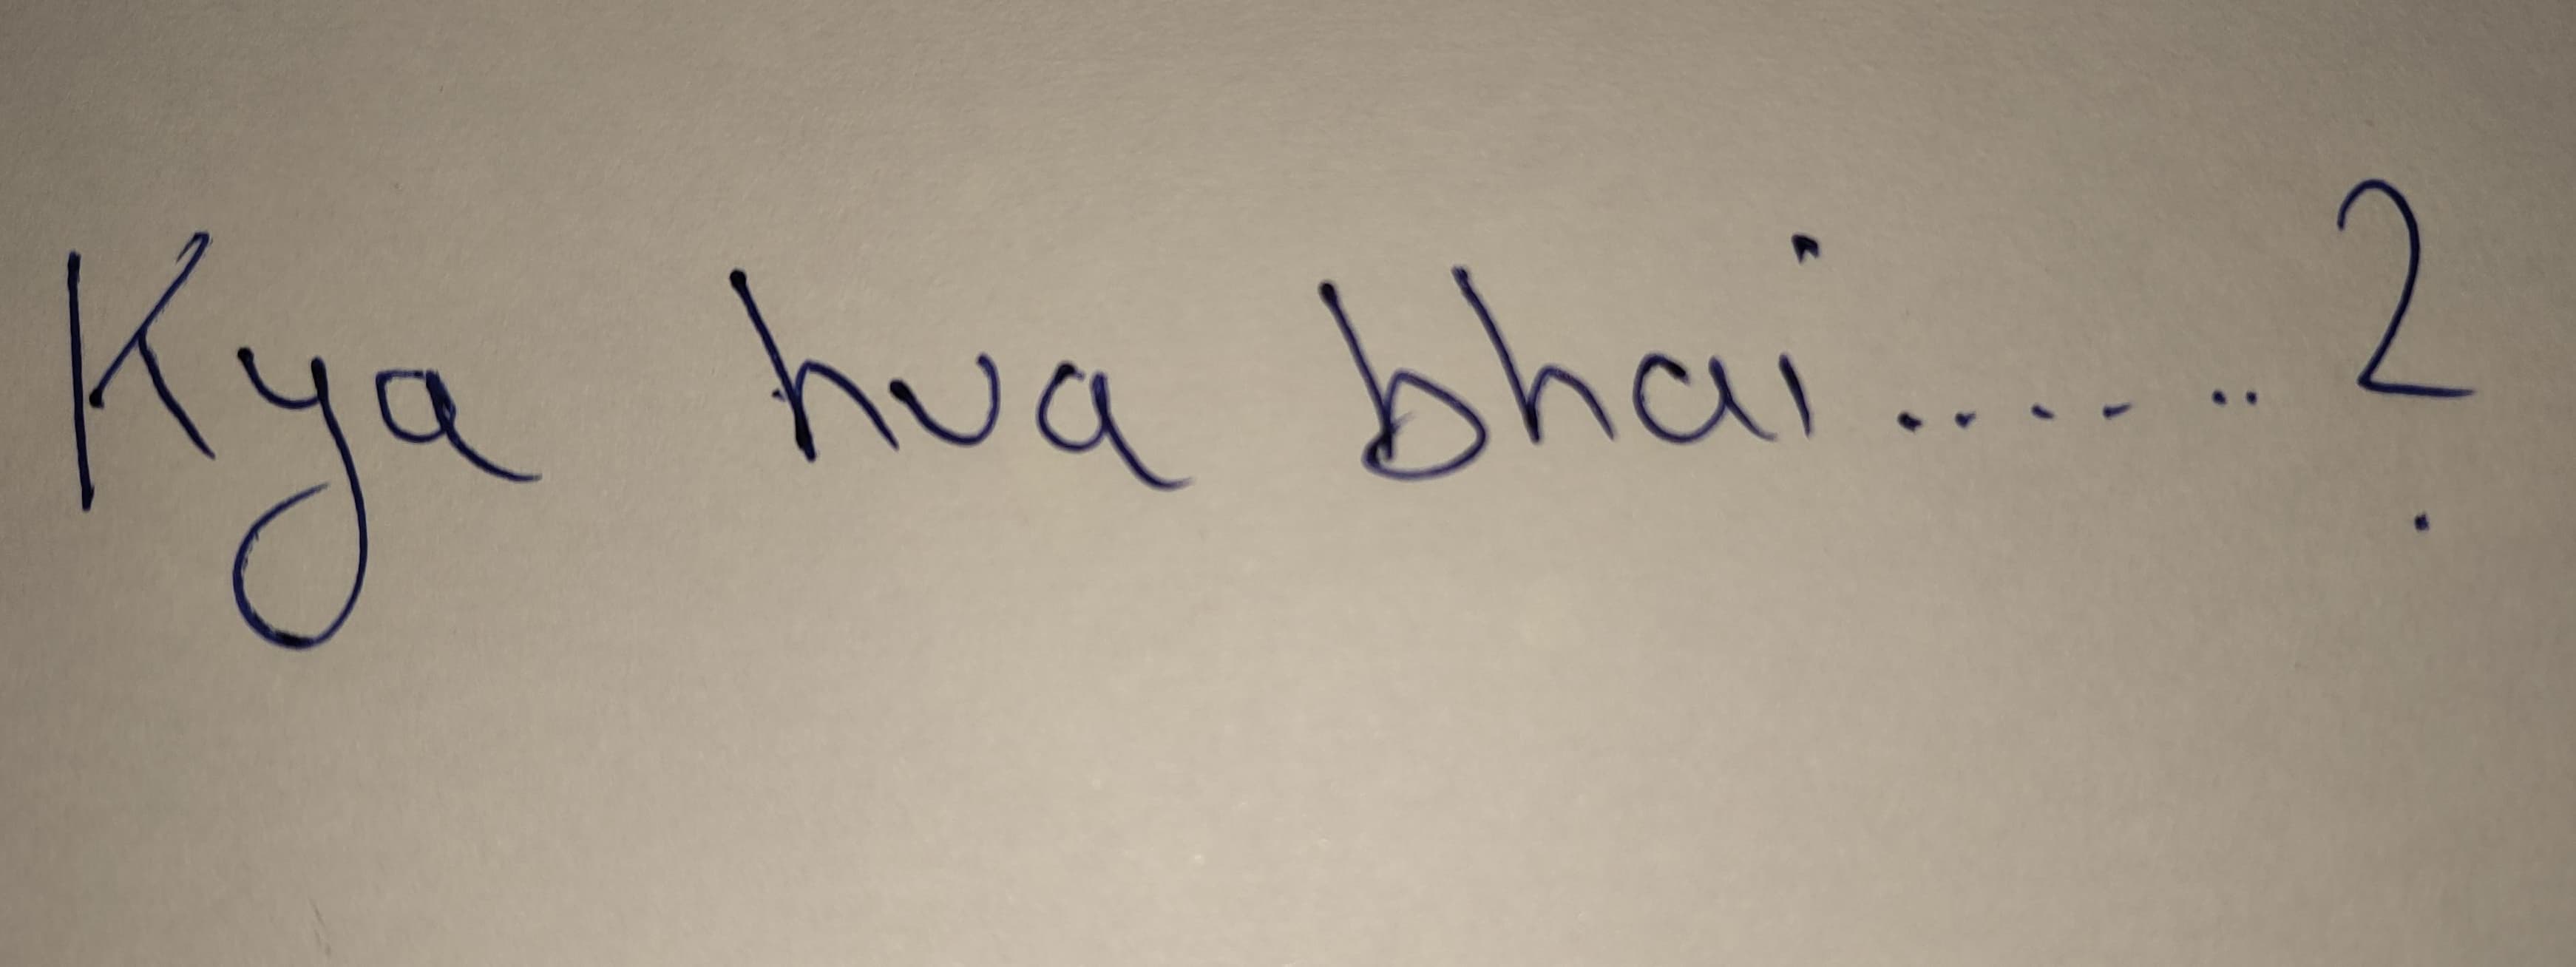 Kya hua bhai.......?